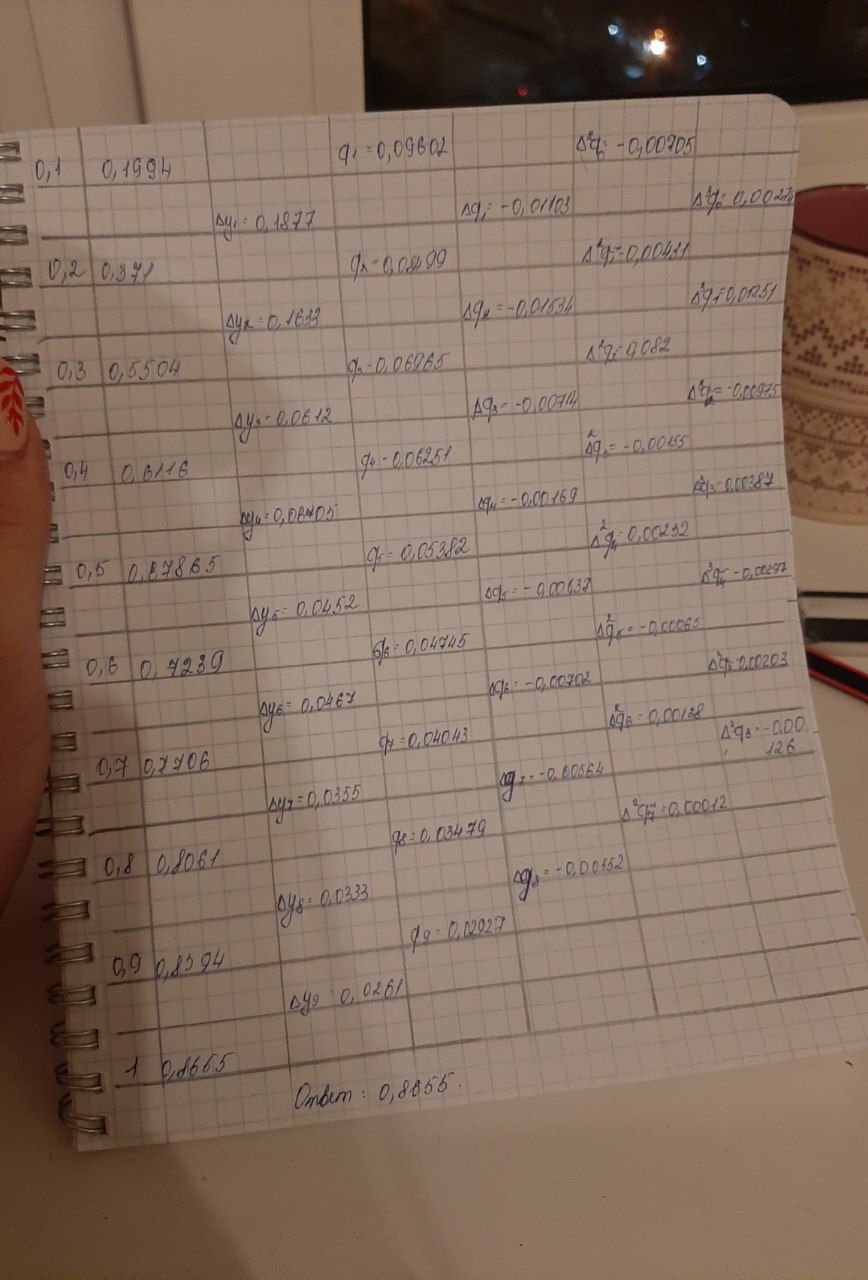 0,1 0,1994 q₁ = 0,09602 Δ²q₀ = -0,00705
Δy₁ = 0,1877 Δq₁ = -0,01103 Δ³q₀ = 0,00274
0,2 0,371 q₂ = 0,08499 Δ²q₁ = -0,00431
Δy₂ = 0,1633 Δq₂ = -0,01534 Δ³q₁ = 0,01251
0,3 0,5504 q₃ = 0,06965 Δ²q₂ = 0,082
Δy₃ = 0,0612 Δq₃ = -0,00714 Δ³q₂ = -0,00975
0,4 0,6116 q₄ = 0,06251 Δ²q₃ = -0,00155
Δy₄ = 0,06705 Δq₄ = -0,00169 Δ³q₃ = 0,00387
0,5 0,67865 q₅ = 0,05382 Δ²q₄ = 0,00232
Δy₅ = 0,0452 Δq₅ = -0,00637 Δ³q₄ = -0,00297
0,6 0,7239 q₆ = 0,04745 Δ²q₅ = -0,00065
Δy₆ = 0,0467 Δq₆ = -0,00702 Δ³q₅ = 0,00203
0,7 0,7706 q₇ = 0,04043 Δ²q₆ = 0,00138 Δ³q₆ = -0,00
126
Δy₇ = 0,0355 Δq₇ = -0,00564
0,8 0,8061 q₈ = 0,03479 Δ²q₇ = 0,00012
Δy₈ = 0,0333 Δq₈ = -0,00552
0,9 0,8394 q₉ = 0,02927
Δy₉ = 0,0261
1 0,8655
Ответ : 0,8655.